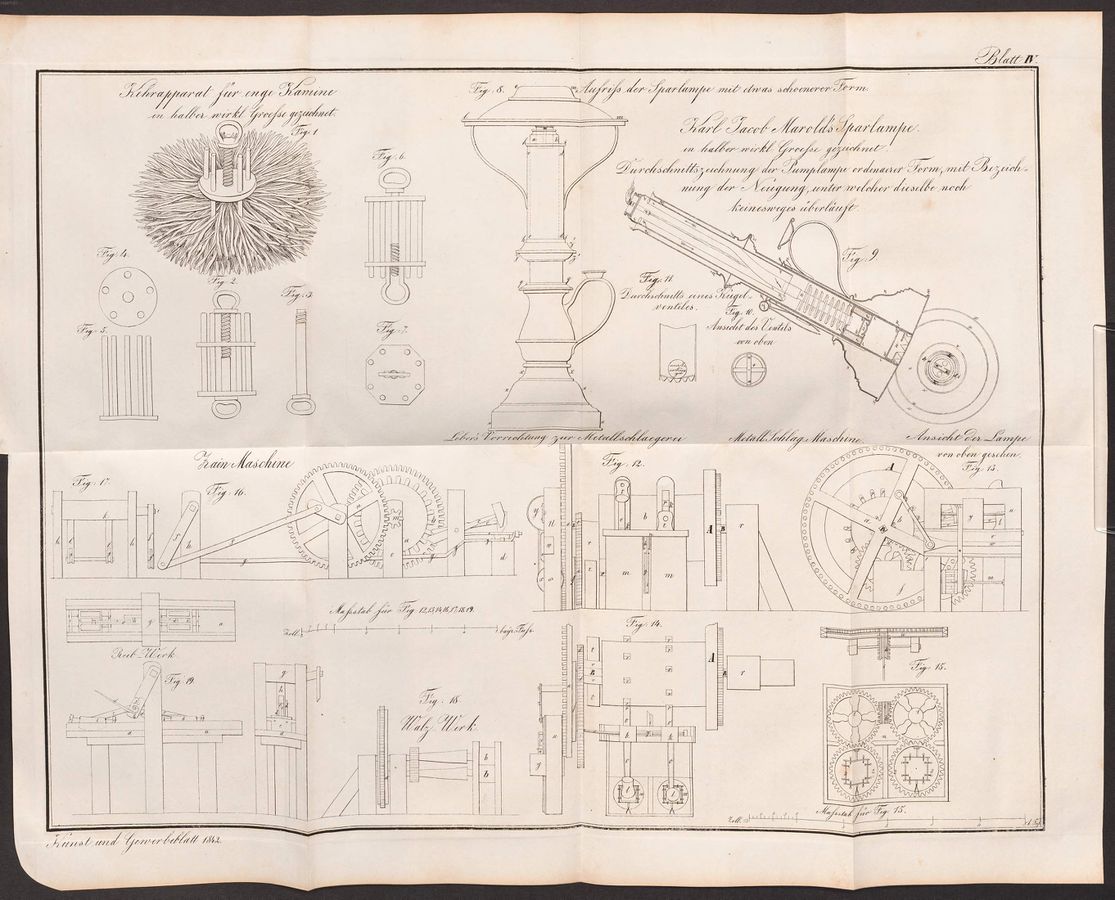 Blatt IV.
Kehrapparat für enge Kamine
in halber wirkl. Groeſse gezeichnet.
Fig. 1
Fig. 6.
Fig. 4.
Fig. 2.
Fig. 3.
Fig. 5.
Fig. 7.
Fig. 8. Aufriſs der Sparlampe mit etwas schoenerer Form.
Karl Jacob Marold's Sparlampe.
in halber wirkl. Groeſse gezeichnet!
Durchschnittszeichnung der Pumplampe ordinairer Form, mit Bezeich-
nung der Neigung, unter welcher dieselbe noch
keinesweges überläuft.
Fig. 9
Fig. 11
Durchschnitt eines Kugel-
ventiles.
Fig. 10.
Ansicht des Ventils
von oben
Leber's Vorrichtung zur Metallschlaegerei
Metall Schlag Maschine
Ansicht der Lampe
von oben gesehen.
Fig. 13.
Zain Maschine
Fig. 17.
Fig. 16.
Fig. 12.
Maſsstab für Fig. 12,13,14,16,17,18,19.
Zoll.
bayr. Fuſs.
Fig. 14.
Fig. 19.
Fig. 18.
Walz Werk
Fig. 15.
Maſsstab für Fig. 15.
Zoll
Kunst und Gewerbeblatt 1842.